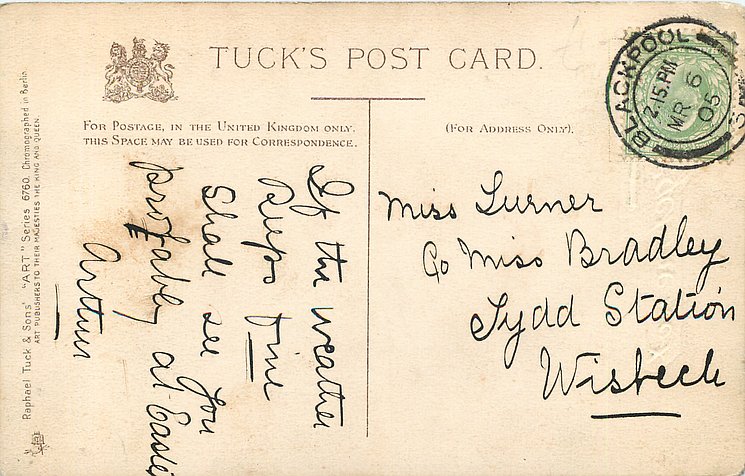 TUCK'S POST CARD.
FOR POSTAGE, IN THE UNITED KINGDOM ONLY,
THIS SPACE MAY BE USED FOR CORRESPONDENCE.
(FOR ADDRESS ONLY).
BLACKPOOL
2.15.PM
MR 6
05
If the weather
Keeps fine
Shall see you
Probably at Easter
Arthur
Miss Turner
c/o Miss Bradley
Tydd Station
Wisbech
Raphael Tuck & Sons' "ART" Series 6760. Chromographed in Berlin.
ART PUBLISHERS TO THEIR MAJESTIES THE KING AND QUEEN.